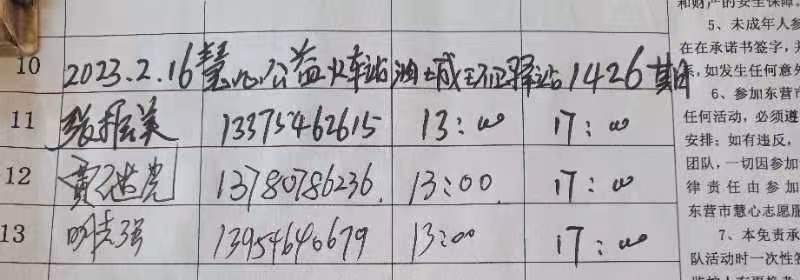 10 2023.2.16慧心公益火车站油城环卫驿站1426期
11 张振美 13375462615 13:00 17:00
12 贾继光 13780786236 13:00 17:00
13 13954640679 13:00 17:00
和财产的安全保障。
5、未成年人参
在在承诺书签字，
，如发生任何意外
6、参加东营市
任何活动，必须遵
安排；如有违反，
团队，一切因参加
律责任由参加
东营市慧心志愿服
7、本免责承
队活动时一次性签